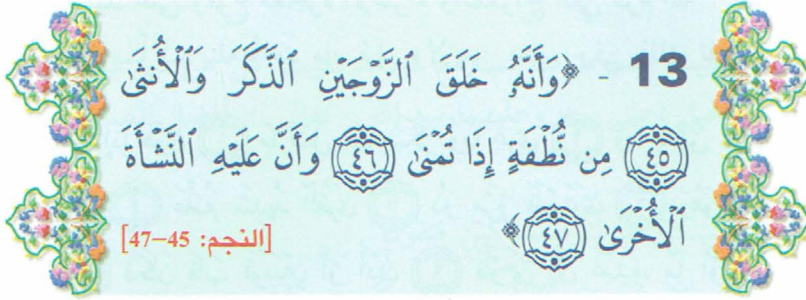 13 - ﴿وَأَنَّهُۥ خَلَقَ ٱلزَّوْجَيْنِ ٱلذَّكَرَ وَٱلْأُنثَىٰ
﴿٤٥﴾ مِن نُّطْفَةٍ إِذَا تُمْنَىٰ ﴿٤٦﴾ وَأَنَّ عَلَيْهِ ٱلنَّشْأَةَ
ٱلْأُخْرَىٰ ﴿٤٧﴾﴾ [النجم: 45–47]